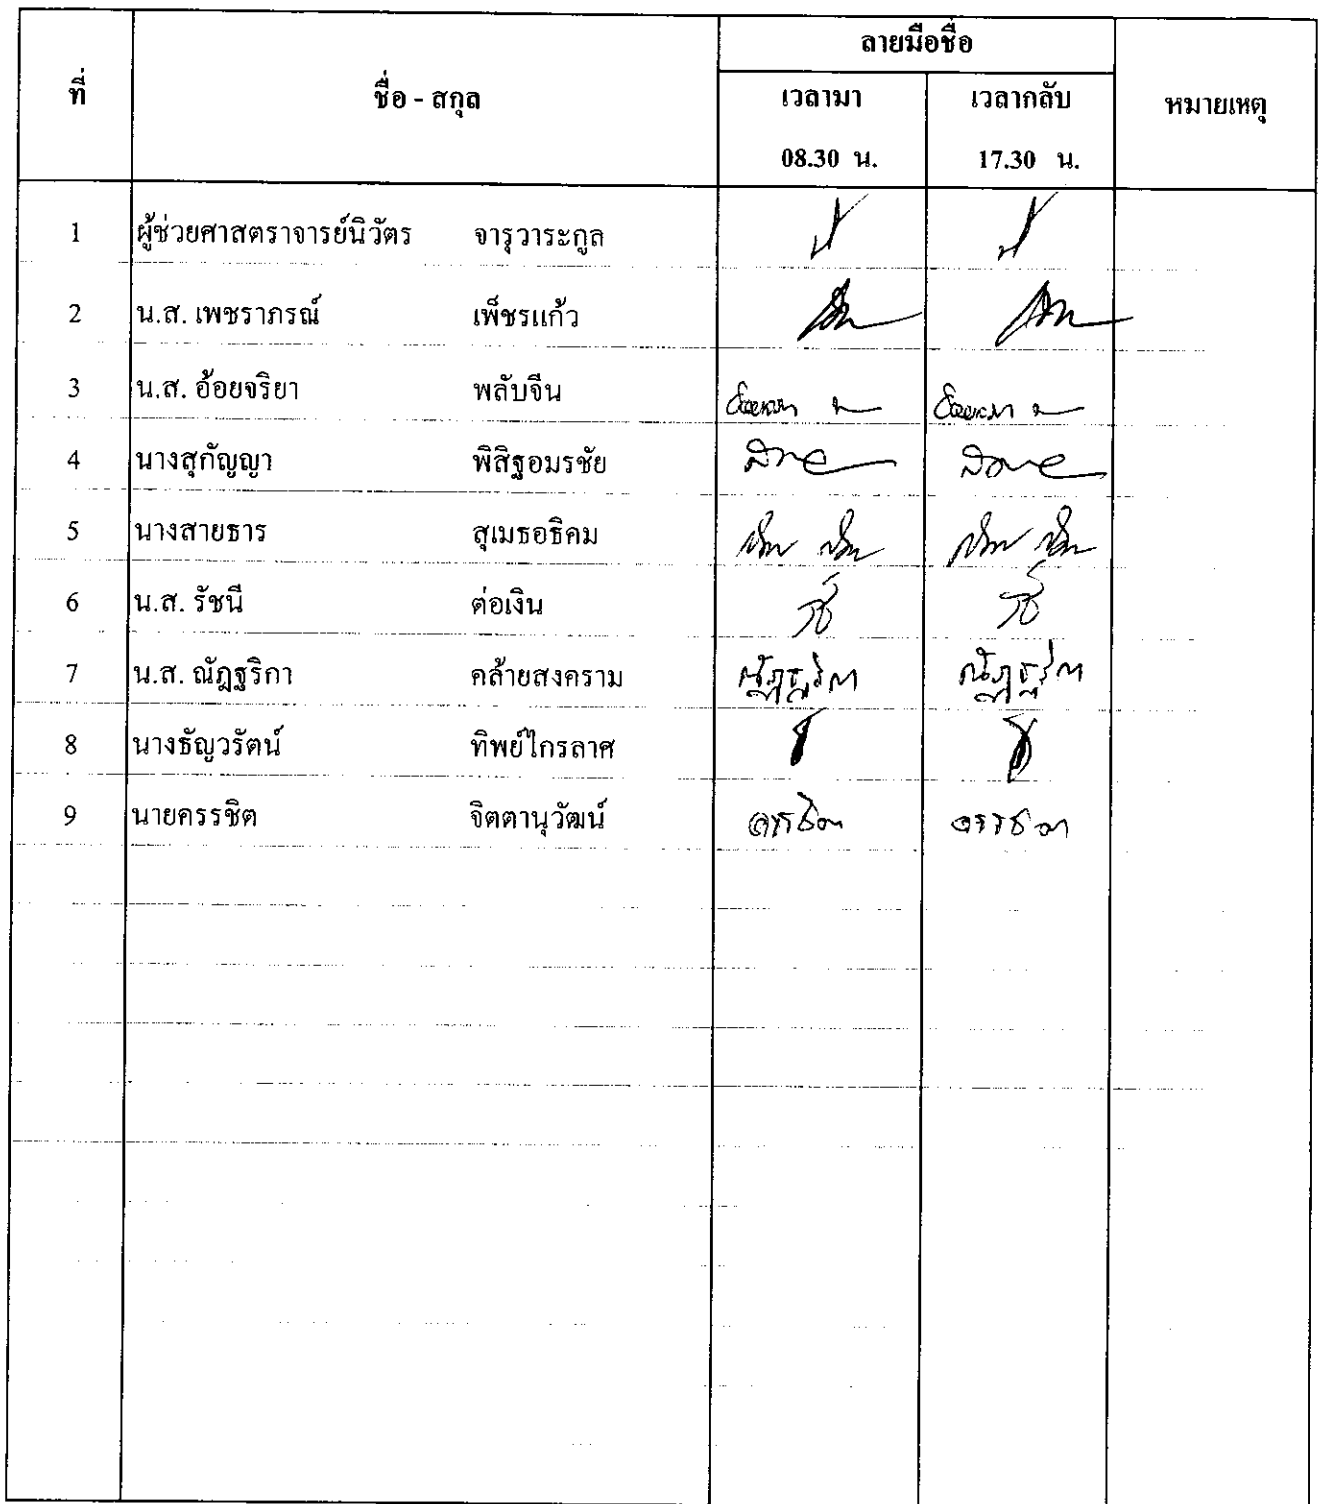 ลายมือชื่อ
ที่ ชื่อ - สกุล เวลามา เวลากลับ หมายเหตุ
08.30 น. 17.30 น.
1 ผู้ช่วยศาสตราจารย์นิวัตร จารุวาระกูล
2 น.ส. เพชราภรณ์ เพ็ชรแก้ว
3 น.ส. อ้อยจริยา พลับจีน
4 นางสุกัญญา พิสิฐอมรชัย
5 นางสายธาร สุเมธอธิคม
6 น.ส. รัชนี ต่อเงิน รช รช
7 น.ส. ณัฎฐริกา คล้ายสงคราม ณัฎฐริกา ณัฎฐริกา
8 นางธัญวรัตน์ ทิพย์ไกรลาศ
9 นายครรชิต จิตตานุวัฒน์ ครรชิต ครรชิต